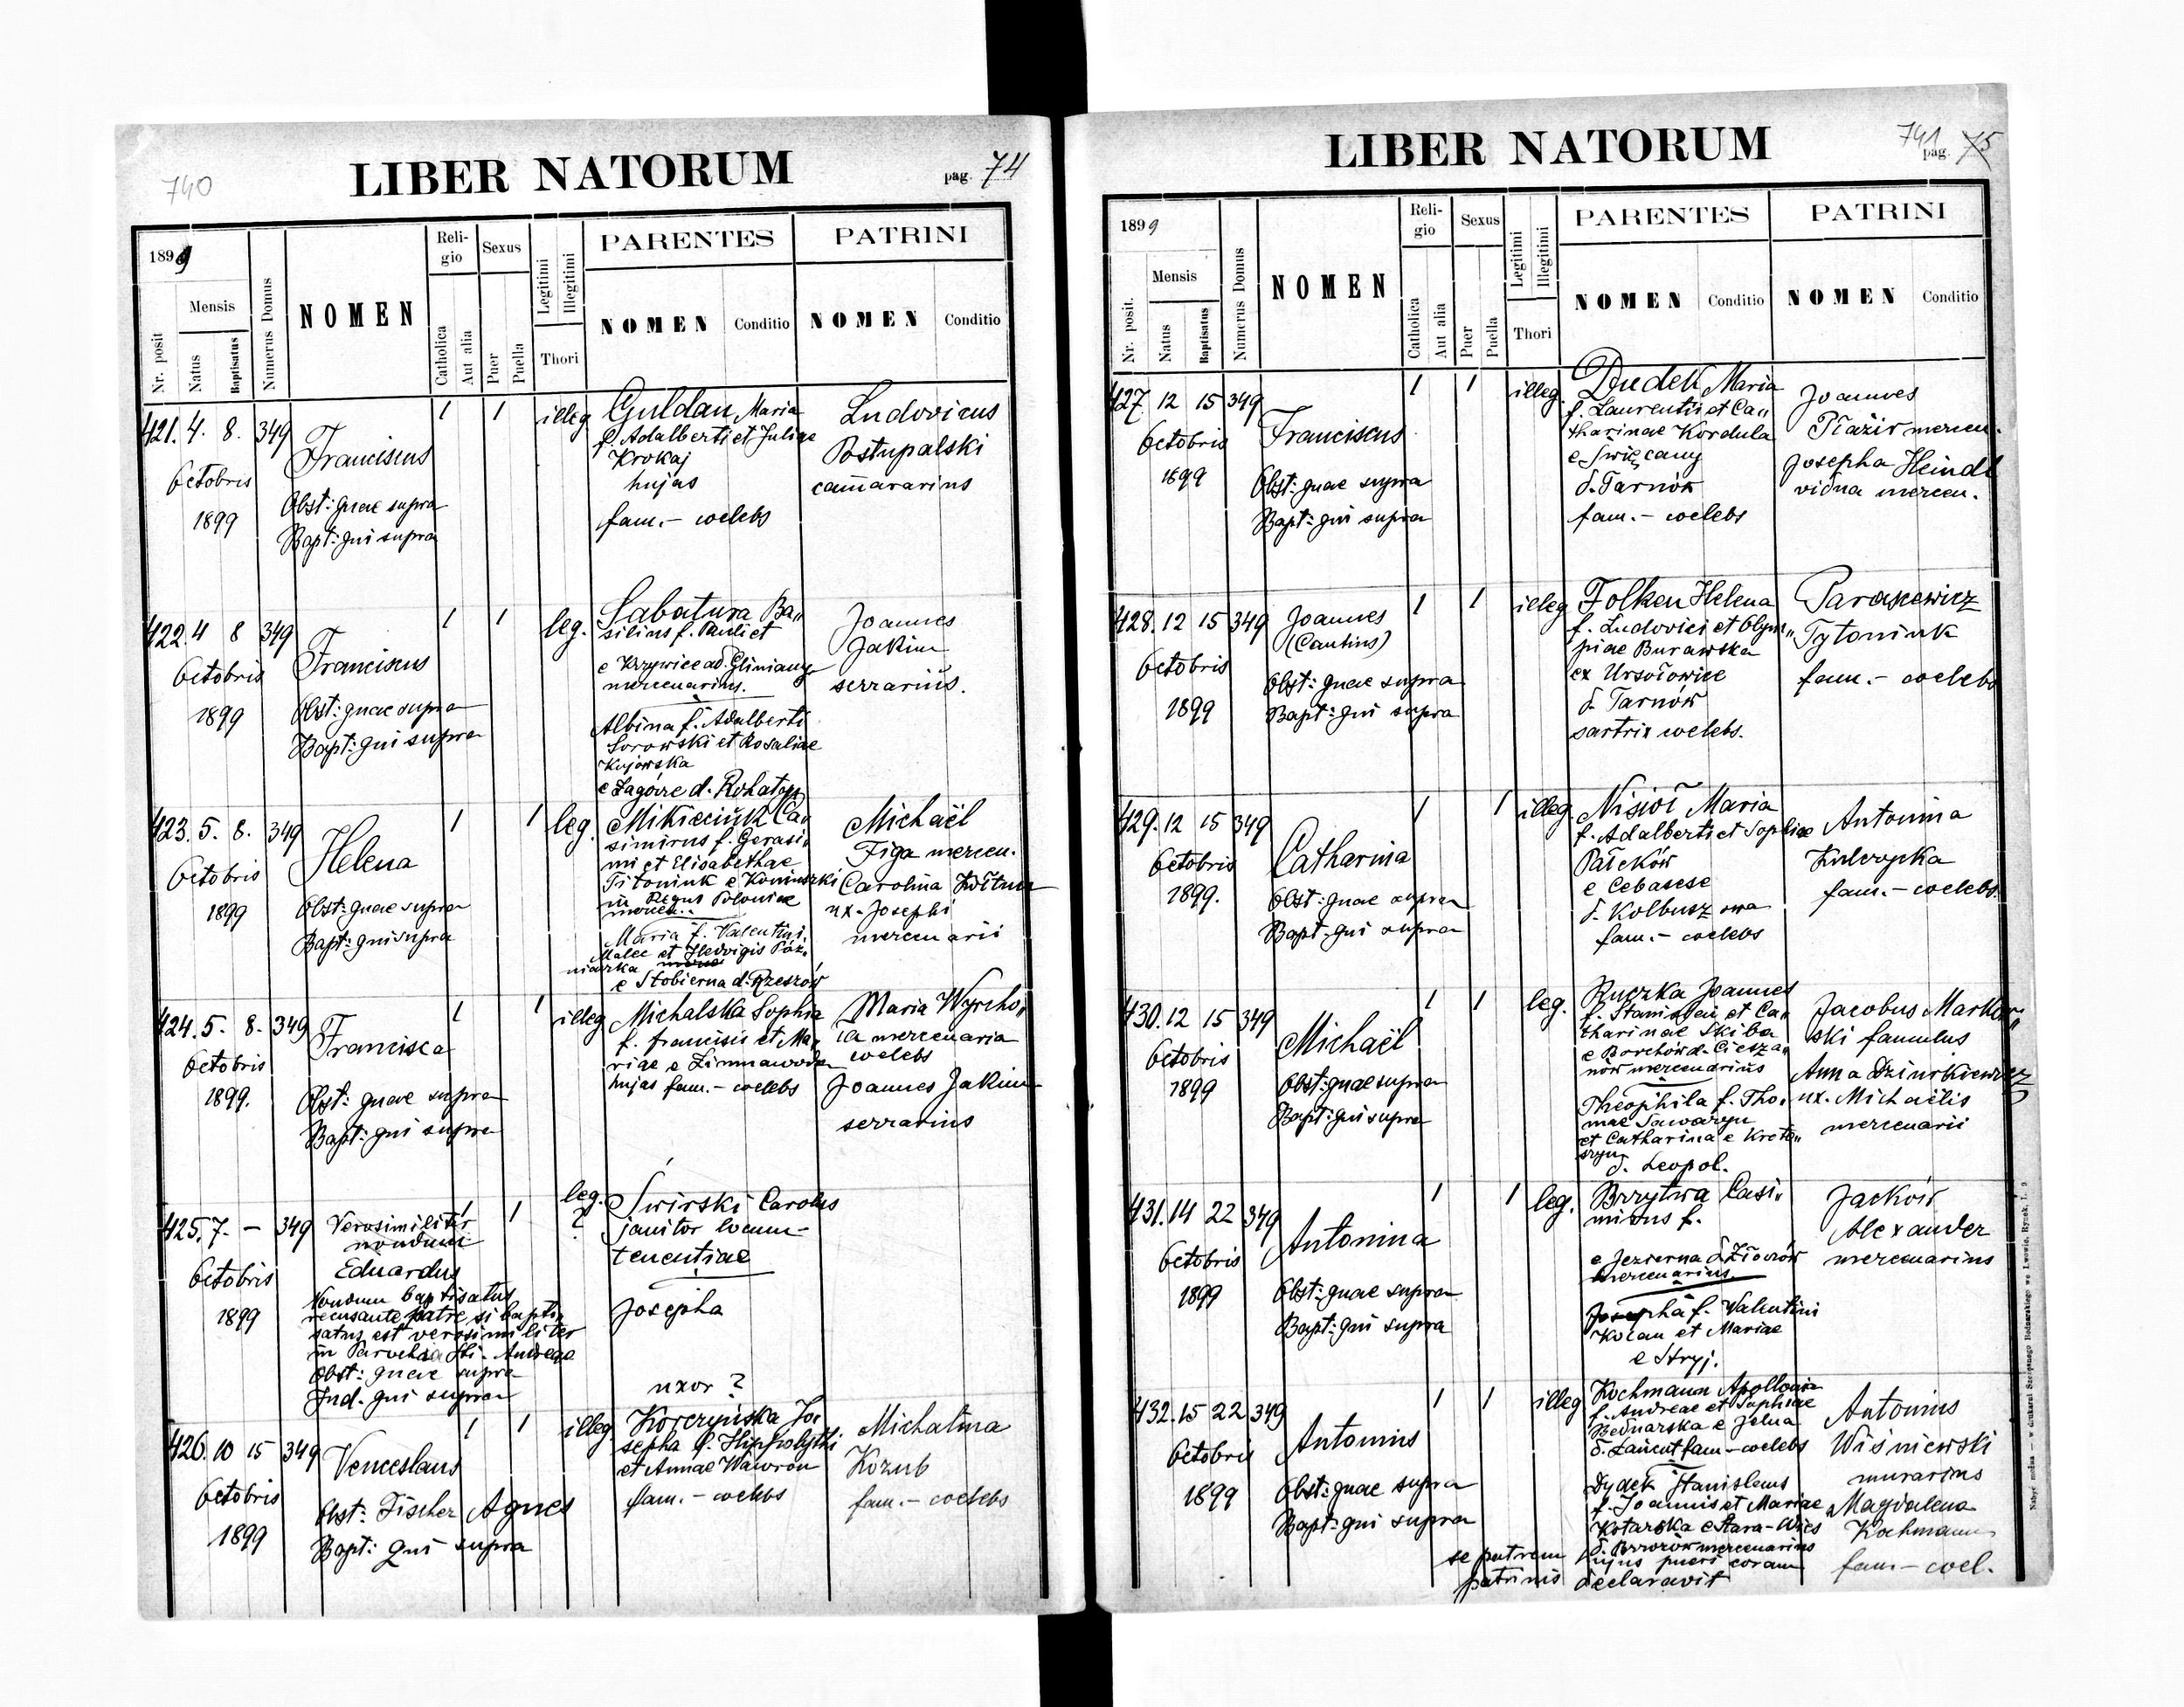 740
LIBER NATORUM
pag. 74
1899
Nr. posit
Mensis
Natus
Baptisatus
Numerus Domus
NOMEN
Reli-
gio
Catholica
Aut alia
Sexus
Puer
Puella
Legitimi
Illegitimi
Thori
PARENTES
NOMEN
Conditio
PATRINI
NOMEN
Conditio
421. 4. 8. 349
Octobris
1899
Franciscus
Obst: quae supra
Bapt: qui supra
1 1 illeg
Guldan Maria
f. Adalberti et Juliae
Krokaj
hujas
fam. – coelebs
Ludovicus
Postupalski
camerarius
422. 4 8 349
Octobris
1899
Franciscus
Obst: quae supra
Bapt: qui supra
1 1 leg.
Sabatura Ba„
silius f. Pauli et
e Krzywice ad Gliniany
mercenarius.
Albina f. Adalberti
Sorowski et Rosaliae
Kujowska
e Zagórze d. Rohatyn
Joannes
Jakim
serrarius.
423. 5. 8. 349
Octobris
1899
Helena
Obst: quae supra
Bapt: qui supra
1 1 leg.
Mikieciuk Ca„
simirus f. Gerasi„
mi et Elisabethae
Titoniuk e Koniuszki
in Regno Poloniae
mercen.
Maria f. Valentini
Malec et Hedvigis Póz„
niarka
e Stobierna d. Rzeszów
Michaël
Figa mercen.
Carolina Kołtun
ux. Josephi
mercenarii
424. 5. 8. 349
Octobris
1899.
Francisca
Obst: quae supra
Bapt: qui supra
1 1 illeg
Michalska Sophia
f. francisci et Ma„
riae e Zimnawoda
hujas fam. – coelebs
Maria Wyrcho„
ła mercenaria
coelebs
Joannes Jakim
serrarius
425. 7. – 349
Octobris
1899
Verosimiliter
nondum
Eduardus
Nondum baptisatus
recusante patre, si bapti„
satus est verosimiliter
in Parochia Sti. Andreae
Obst: quae supra
Ind. qui supra
1 1 leg.
?
Świrski Carolus
janitor locum-
tenentiae
Josepha
uxor ?
426. 10 15 349
Octobris
1899
Venceslaus
Obst: Fischer Agnes
Bapt: qui supra
1 1 illeg
Korczyńska Jo„
sepha f. Hippolythi
et Annae Wawron
fam. – coelebs
Michalina
Kozub
fam. – coelebs
741
LIBER NATORUM
pag. 75
1899
Nr. posit.
Mensis
Natus
Baptisatus
Numerus Domus
NOMEN
Reli-
gio
Catholica
Aut alia
Sexus
Puer
Puella
Legitimi
Illegitimi
Thori
PARENTES
NOMEN
Conditio
PATRINI
NOMEN
Conditio
427. 12 15 349
Octobris
1899
Franciscus
Obst: quae supra
Bapt: qui supra
1 1 illeg.
Dudek Maria
f. Laurentii et Ca„
tharinae Kordula
e Święcany
d. Tarnów
fam. – coelebs
Joannes
mercen.
Josepha Heindl
vidua mercen.
428. 12 15 349
Octobris
1899
Joannes
(Cantius)
Obst: quae supra
Bapt: qui supra
1 1 illeg
Folken Helena
f. Ludovici et Olym„
piae Burawska
ex Ursołowice
d. Tarnów
sartrix coelebs.
Parascewicz
Tytoniuk
fam. – coelebs
429. 12 15 349
Octobris
1899.
Catharina
Obst: quae supra
Bapt. qui supra
1 1 illeg.
Nisioł Maria
f. Adalberti et Sophiae
Pałcków
e Cebasese
d. Kolbuszowa
fam. – coelebs
Antonina
Kulczycka
fam. – coelebs.
430. 12 15 349
Octobris
1899
Michaël
Obst: quae supra
Bapt: qui supra
1 1 leg.
Ruczka Joannes
f. Stanislai et Ca„
tharinae Skiba
e Borchów d. Ciesza„
nów mercenarius
Theophila f. Tho„
mae Sawaryn
et Catharina e Kroto„
szyn
d. Leopol.
Jacobus Markow„
ski famulus
Anna Dziurkiewicz
ux. Michaëlis
mercenarii
431. 14 22 349
Octobris
1899
Antonina
Obst: quae supra
Bapt: qui supra
1 1 leg.
Brzytwa Casi„
mirus f.
e Jezierna d. Złoczów
mercenarius.
Josepha f. Valentini
Kocan et Mariae
e Stryj.
Jackow
Alexander
mercenarius
432. 15 22 349
Octobris
1899
Antonius
Obst: quae supra
Bapt: qui supra
1 1 illeg
Kochmann Apollonia
f. Andreae et Sophiae
Bednarska e Jelna
d. Łańcut fam – coelebs
Dydek Stanislaus
f. Joannis et Mariae
Kotarska e Stara-Wieś
d. Brzozów mercenarius
se patrem hujus pueri coram
patrinis declaravit
Antonius
Wiśniewski
murarius
Magdalena
Kochmann
fam – coel.